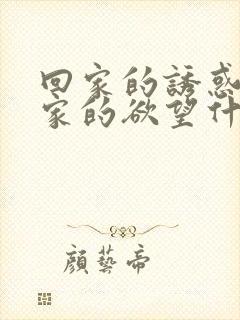 回家的誘惑
家的欲望什
顏藝帝